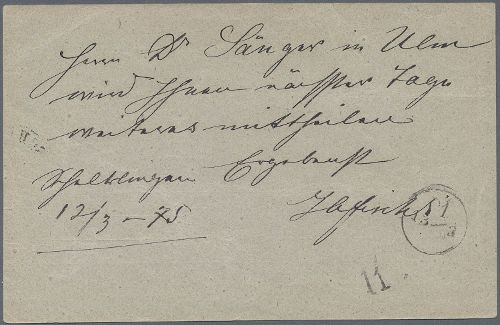 Herrn Dr Sänger in Ulm
wird Ihnen nächster Tage
weiteres mittheilen
Ergebenst
Schelklingen
12/3 – 75
11.